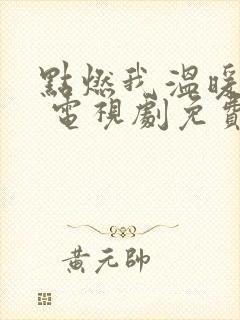 點燃我 溫暖
電視劇免費
黃元帥